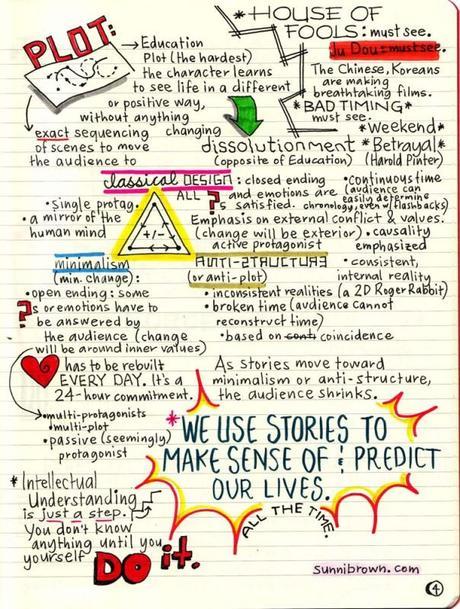 PLOT:
→ Education
Plot (the hardest)
the character learns
to see life in a different
or positive way,
without anything
changing
exact sequencing
of scenes to move
the audience to
*HOUSE OF
FOOLS: must see.
Ju Dou = must see.
The Chinese, Koreans
are making
breathtaking films.
*BAD TIMING*
must see.
*Weekend*
*Betrayal*
(Harold Pinter)
dissolutionment
(opposite of Education)
classical DESIGN: closed ending
ALL ? and emotions are
satisfied.
• continuous time
(audience can
easily determine
chronology, even w/ flashbacks)
• single protag.
• a mirror of the
human mind
+/-
Emphasis on external conflict & values.
(change will be exterior)
active protagonist
• causality
emphasized
• consistent,
internal reality
minimalism
(min. change):
• open ending: some
?s or emotions have to
be answered by
the audience (change
will be around inner values)
ANTI-STRUCTURE
(or anti-plot)
• inconsistent realities (a 2D Roger Rabbit)
• broken time (audience cannot
reconstruct time)
• based on conti coincidence
has to be rebuilt
EVERY DAY. It's a
24-hour commitment.
As stories move toward
minimalism or anti-structure,
the audience shrinks.
• multi-protagonists
• multi-plot
• passive (seemingly)
protagonist
*WE USE STORIES TO
MAKE SENSE OF & PREDICT
OUR LIVES.
ALL THE TIME.
* Intellectual
Understanding
is just a step.
You don't know
anything until you
yourself DO it.
sunnibrown.com
4